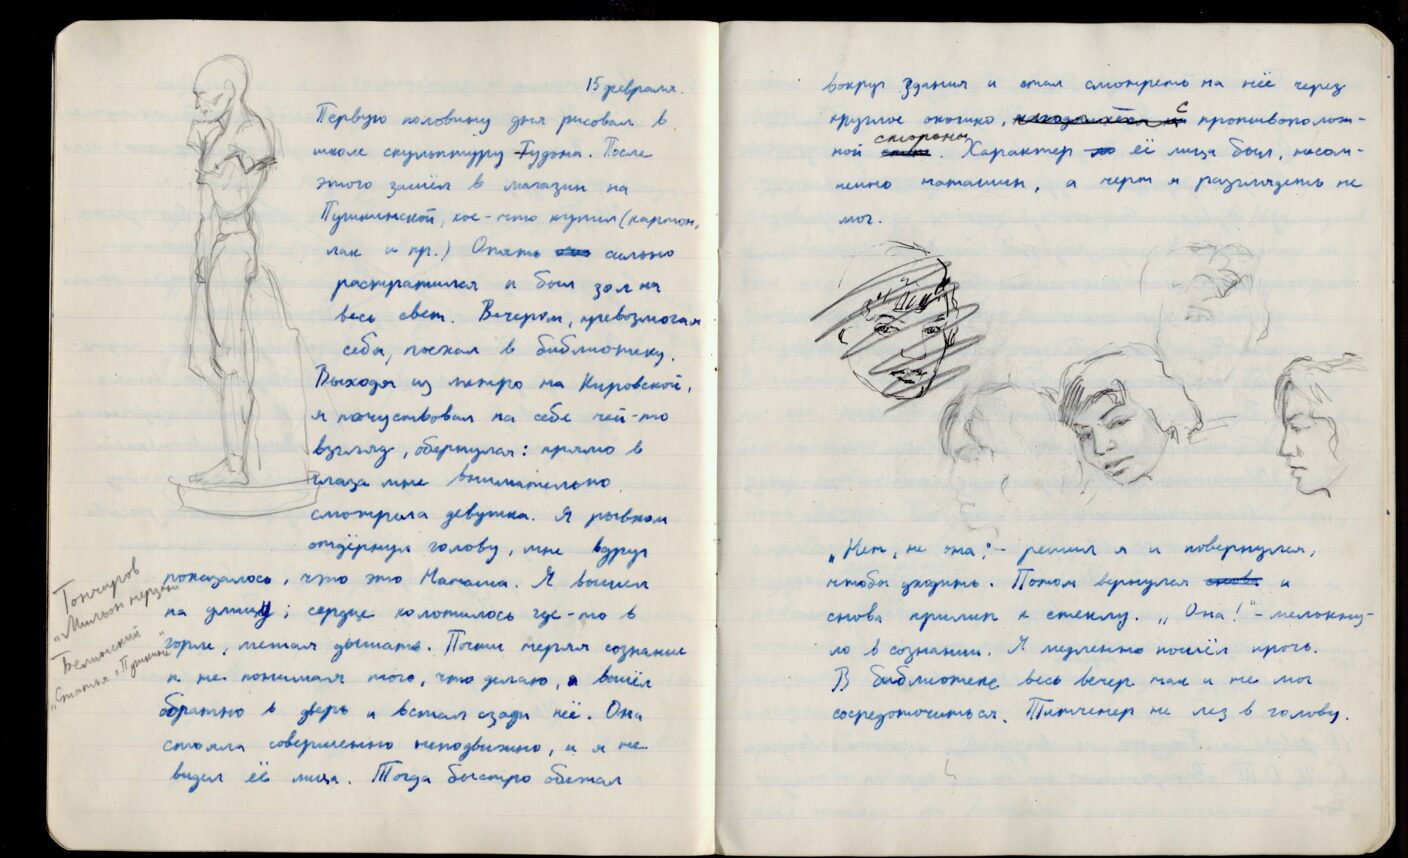 15 февраля.
Первую половину дня рисовал в
школе скульптуру Гудона. После
этого зашёл в магазин на
Пушкинской, кое-что купил (картон,
лак и пр.) Опять сильно
растратился и был зол на
весь свет. Вечером, превозмогая
себя, поехал в библиотеку.
Выходя из метро на Кировской,
я почуствовал на себе чей-то
взгляд, обернулся: прямо в
глаза мне внимательно
смотрела девушка. Я рывком
отдёрнул голову, мне вдруг
показалось, что это Наташа. Я вышел
на улицу; сердце колотилось где-то в
горле, мешая дышать. Почти теряя сознание
и не понимая того, что делаю, я вошёл
обратно в дверь и встал сзади неё. Она
стояла совершенно неподвижно, и я не
видел её лица. Тогда быстро обежал
Гончаров
"Мильон терзаний"
Белинский
"Статьи о Пушкине"
вокруг здания и стал смотреть на неё через
круглое окошко, с противополож-
ной стороны. Характер её лица был, несом-
ненно наташин, а черт я разглядеть не
мог.
„Нет, не она," - решил я и повернулся,
чтобы уходить. Потом вернулся и
снова прилип к стеклу. „Она!" - мелькну-
ло в сознании. Я медленно пошёл прочь.
В библиотеке весь вечер так и не мог
сосредоточиться. Титченер не лез в голову.